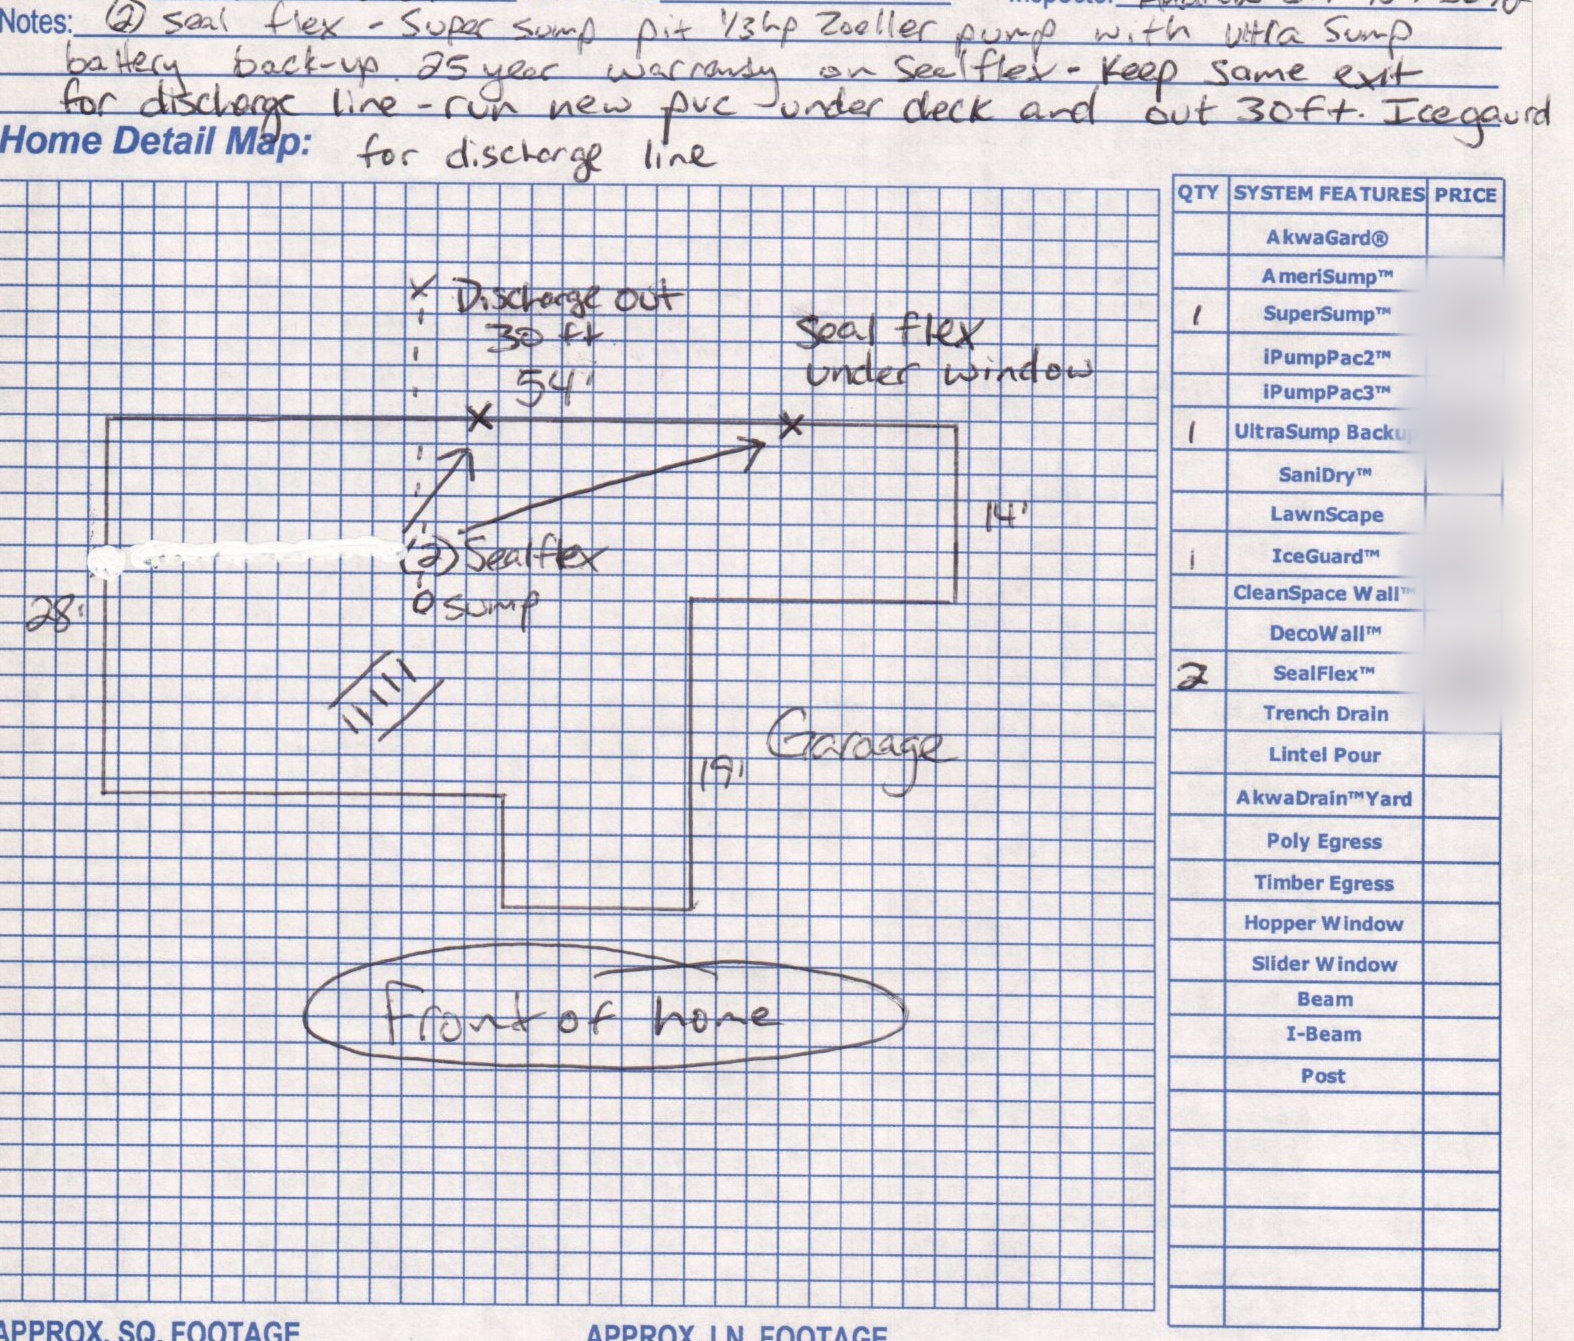 Inspector
Notes: (2) seal flex - Super sump pit 1/3hp Zoeller pump with Ultra Sump
battery back-up. 25 year warranty on Sealflex - Keep same exit
for discharge line - run new pvc under deck and out 30ft. Icegaurd
Home Detail Map: for discharge line
QTY SYSTEM FEATURES PRICE
AkwaGard®
AmeriSump™
1 SuperSump™
iPumpPac2™
iPumpPac3™
1 UltraSump Backup
SaniDry™
LawnScape
1 IceGuard™
CleanSpace Wall™
DecoWall™
2 SealFlex™
Trench Drain
Lintel Pour
AkwaDrain™Yard
Poly Egress
Timber Egress
Hopper Window
Slider Window
Beam
I-Beam
Post
X Discharge out
30 ft
54'
Seal flex
under window
X
X
14'
(2) Sealflex
O sump
28'
Garaage
19'
Front of home
APPROX. SQ. FOOTAGE
APPROX. LN. FOOTAGE